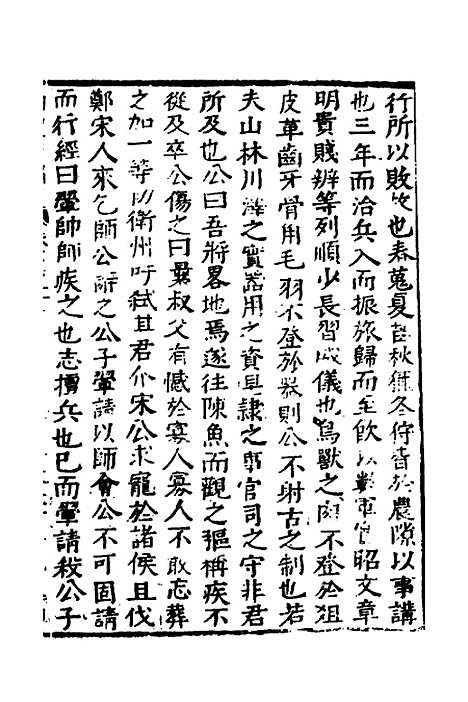 行所以敗也春蒐夏苗秋獮冬狩皆於農隙以事講
也三年而治兵入而振旅歸而至飲以數軍實昭文章
明貴賤辨等列順少長習威儀也鳥獸之肉不登於俎
皮革齒牙骨角毛羽不登於器則公不射古之制也若
夫山林川澤之實器用之資皁隸之事官司之守非君
所及也公曰吾將畧地焉遂往陳魚而觀之彄稱疾不
從及卒公傷之曰叔父有憾於寡人寡人不敢忘葬
之加一等衛州吁弑其君介宋公求寵於諸侯且伐
鄭宋人來乞師公辭之公子翬請以師會公不可固請
而行經曰翬帥師疾之也志擅兵也已而翬請殺公子